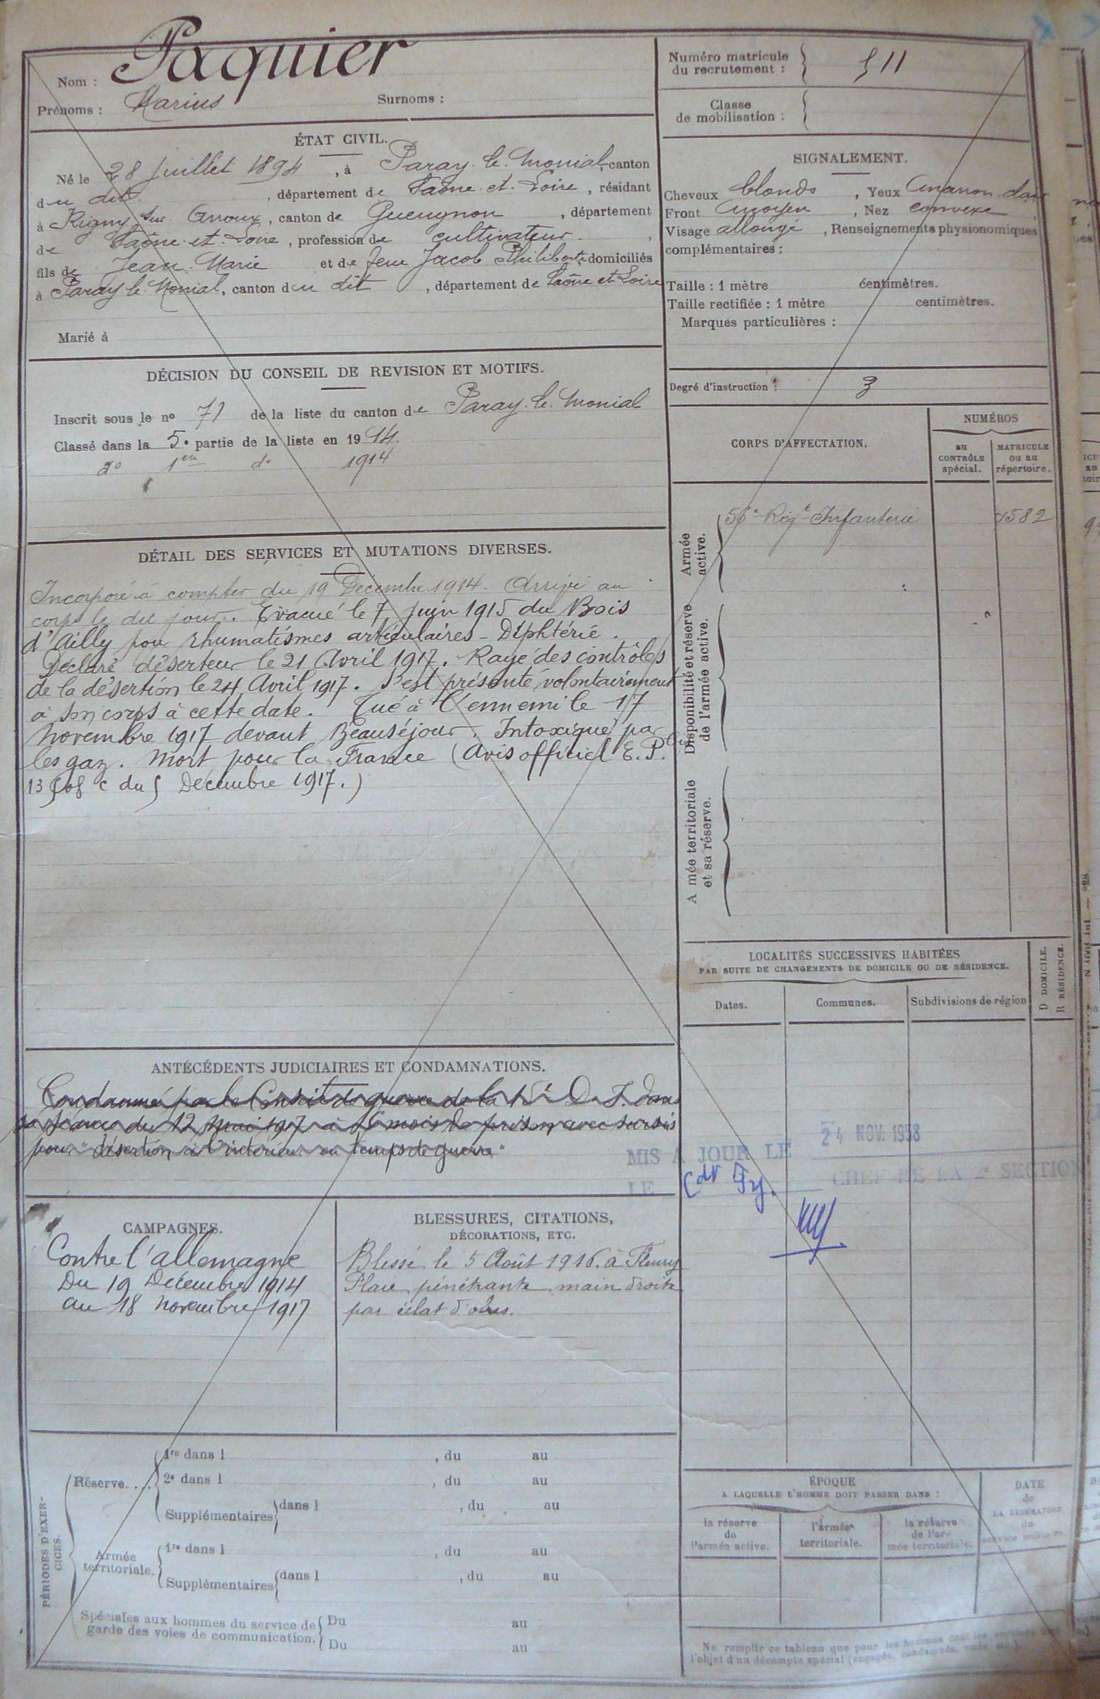 Nom : Paquier
Prénoms : Marius Surnoms :
Numéro matricule
du recrutement : 511
Classe
de mobilisation :
ÉTAT CIVIL.
Né le 28 Juillet 1894, à Paray-le-Monial, canton
du dit, département de Saône-et-Loire, résidant
à Rigny sur Arroux, canton de Gueugnon, département
de Saône-et-Loire, profession de cultivateur,
fils de Jean-Marie et de feue Jacob Philiberte, domiciliés
à Paray-le-Monial, canton du dit, département de Saône et Loire
Marié à
SIGNALEMENT.
Cheveux blonds, Yeux marron
Front moyen, Nez convexe
Visage allongé, Renseignements physionomiques
complémentaires :
Taille : 1 mètre centimètres.
Taille rectifiée : 1 mètre centimètres.
Marques particulières :
Degré d'instruction : 3
DÉCISION DU CONSEIL DE REVISION ET MOTIFS.
Inscrit sous le no 71 de la liste du canton de Paray-le-Monial
Classé dans la 5e partie de la liste en 1914.
2o 1re do 1914
CORPS D'AFFECTATION.
NUMÉROS
AU CONTRÔLE spécial.
MATRICULE OU AU répertoire.
Armée active.
Régt Infanterie 7582
Disponibilité et réserve de l'armée active.
A mée territoriale et sa réserve.
DÉTAIL DES SERVICES ET MUTATIONS DIVERSES.
Incorporé à compter du 19 Décembre 1914. Arrivé au
corps le dit jour. Evacué le 7 juin 1915 du Bois
d'Ailly pour rhumatismes articulaires - Diphtérie.
Déclaré déserteur le 21 Avril 1917. Rayé des contrôles
de la désertion le 24 Avril 1917. S'est présenté volontairement
à son corps à cette date. Tué à l'ennemi le 17
Novembre 1917 devant Beauséjour. Intoxiqué par
les gaz. Mort pour la France (Avis officiel E.P.
c du 5 Décembre 1917.)
LOCALITÉS SUCCESSIVES HABITÉES
PAR SUITE DE CHANGEMENTS DE DOMICILE OU DE RÉSIDENCE.
Dates. Communes. Subdivisions de région
D DOMICILE.
R RÉSIDENCE.
ANTÉCÉDENTS JUDICIAIRES ET CONDAMNATIONS.
Condamné par le Conseil de guerre de la D. I. dans
sa séance du 12 mai 1917 à 6 mois de prison avec sursis
pour "désertion à l'intérieur en temps de guerre"
24 NOV. 1958
MIS A JOUR LE
LE CHEF DE LA SECTION
CAMPAGNES.
Contre l'allemagne
Du 19 Décembre 1914
au 18 Novembre 1917
BLESSURES, CITATIONS,
DÉCORATIONS, ETC.
Blessé le 5 Août 1916 à Fleury
Plaie pénétrante main droite
par éclat d'obus.
PÉRIODES D'EXERCICES.
Réserve....
1re dans l , du au
2e dans l , du au
Supplémentaires dans l , du au
Armée territoriale.
1re dans l , du au
Supplémentaires dans l , du au
Spéciales aux hommes du service de
garde des voies de communication.
Du au
Du au
ÉPOQUE
A LAQUELLE L'HOMME DOIT PASSER DANS :
la réserve de l'armée active.
l'armée territoriale.
la réserve de l'armée territoriale.
DATE
de
LA LIBÉRATION
du
service militaire.
Ne remplir ce tableau que pour les hommes dont les
l'objet d'un décompte spécial (engagés,